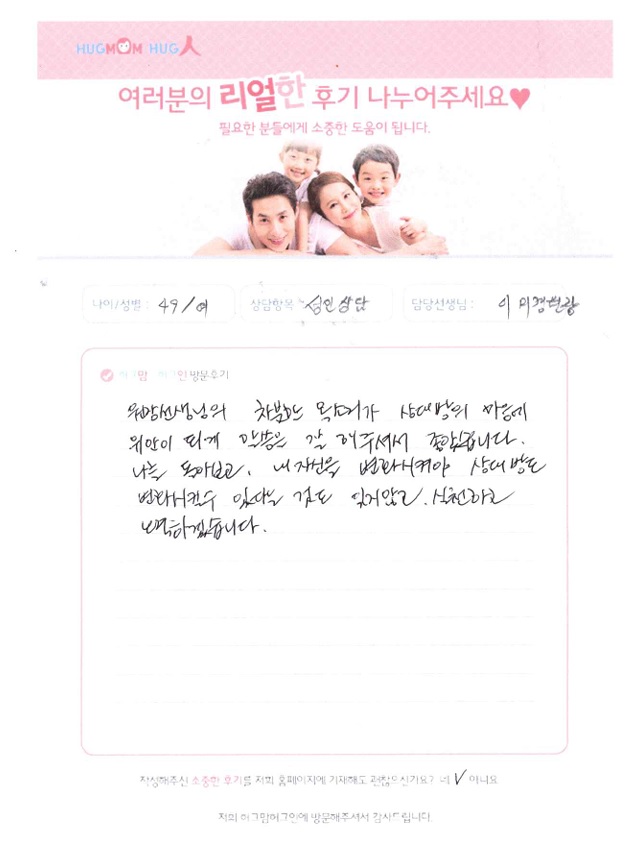 HUGMOM HUG人
여러분의 리얼한 후기 나누어주세요♥
필요한 분들에게 소중한 도움이 됩니다.
나이/성별 : 49/여 상담항목 : 성인상담 담당선생님 : 이미경원장
허그맘 허그인 방문후기
원장선생님의 차분한 목소리가 상대방의 마음에
위안이 되게 말씀을 잘 해주셔서 좋았습니다.
나를 돌아보고, 내 자신을 변화시켜야 상대방도
변화시킬수 있다는 것도 잊지않고, 실천하고
노력하겠습니다.
작성해주신 소중한 후기를 저희 홈페이지에 기재해도 괜찮으신가요? 네 ✓ 아니요
저희 허그맘허그인에 방문해주셔서 감사드립니다.